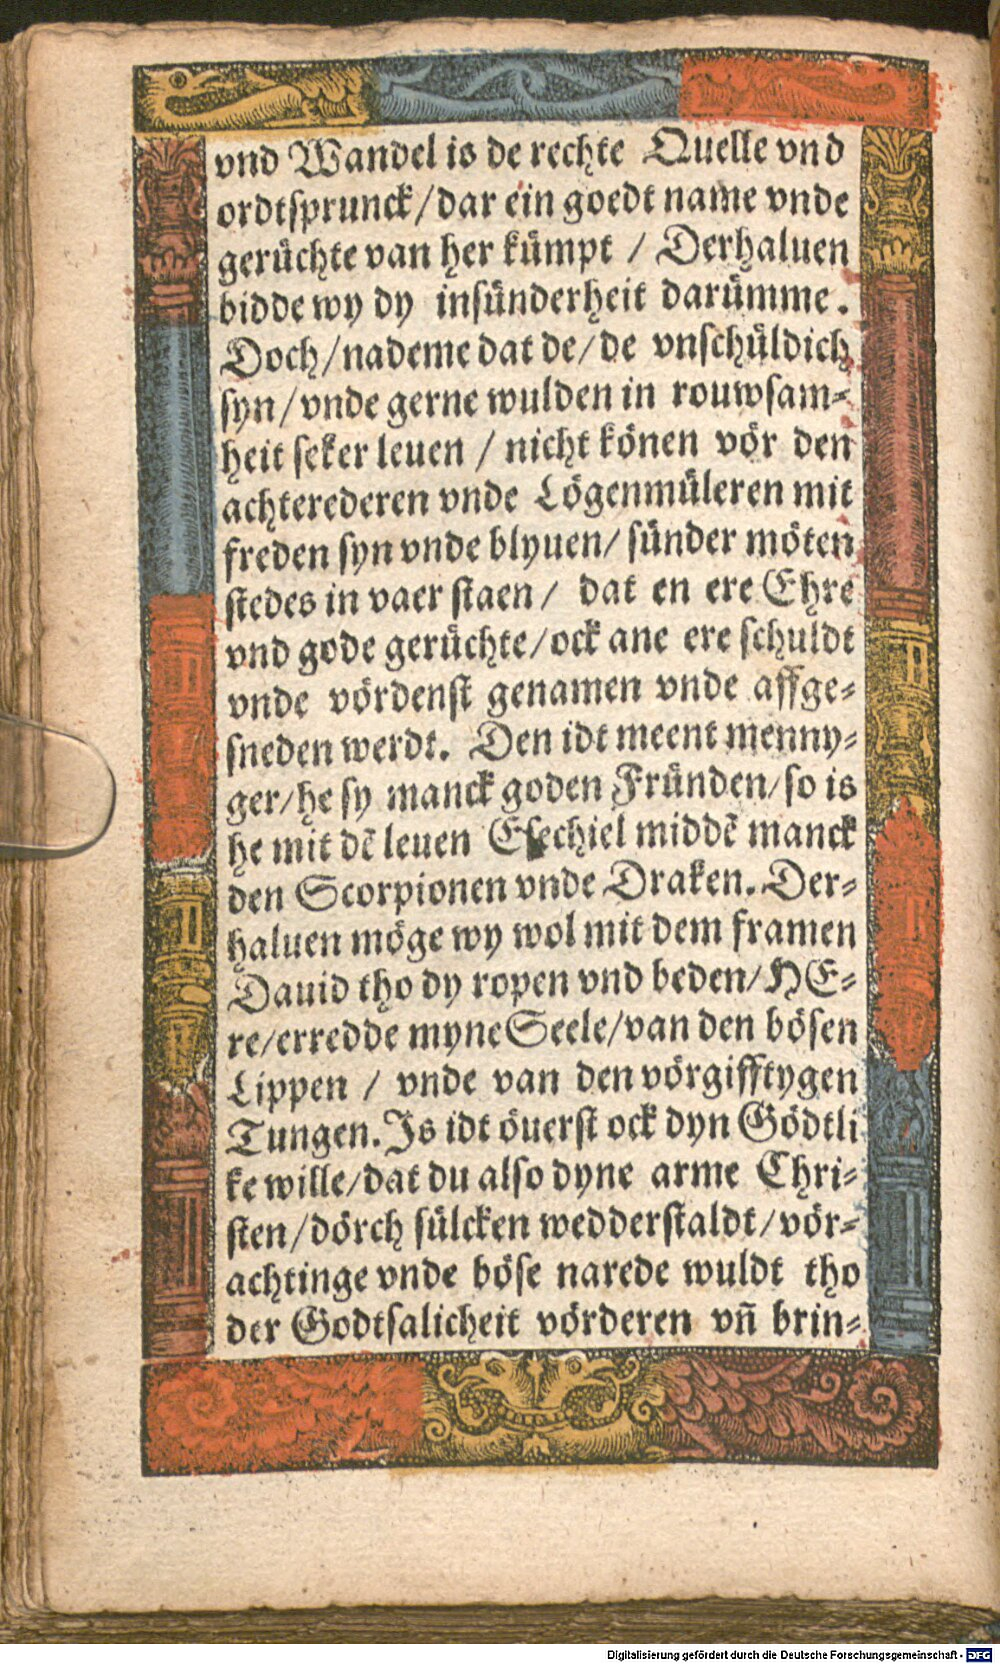 vnd Wandel is de rechte Quelle vnd
ordtsprunck/dar ein goedt name vnde
gerüchte van her kümpt / Derhaluen
bidde wy dy insünderheit darümme.
Doch/nademe dat de/de vnschüldich
syn/vnde gerne wulden in rouwsam-
heit seker leuen / nicht könen vör den
achterederen vnde Lögenmüleren mit
freden syn vnde blyuen/ sünder möten
stedes in vaer staen/ dat en ere Ehre
vnd gode gerüchte/ock ane ere schuldt
vnde vördenst genamen vnde affge-
sneden werdt. Den idt meent menny-
ger/he sy manck goden Fründen/so is
he mit dē leuen Esechiel middē manck
den Scorpionen vnde Draken. Der-
haluen möge wy wol mit dem framen
Dauid tho dy ropen vnd beden/HE-
re/erredde myne Seele/van den bösen
Lippen / vnde van den vörgifftygen
Tungen. Js idt öuerst ock dyn Gödtli
ke wille/dat du also dyne arme Chri-
sten/dörch sülcken wedderstaldt/vör-
achtinge vnde böse narede wuldt tho
der Godtsalicheit vörderen vñ brin-
Digitalisierung gefördert durch die Deutsche Forschungsgemeinschaft - DFG